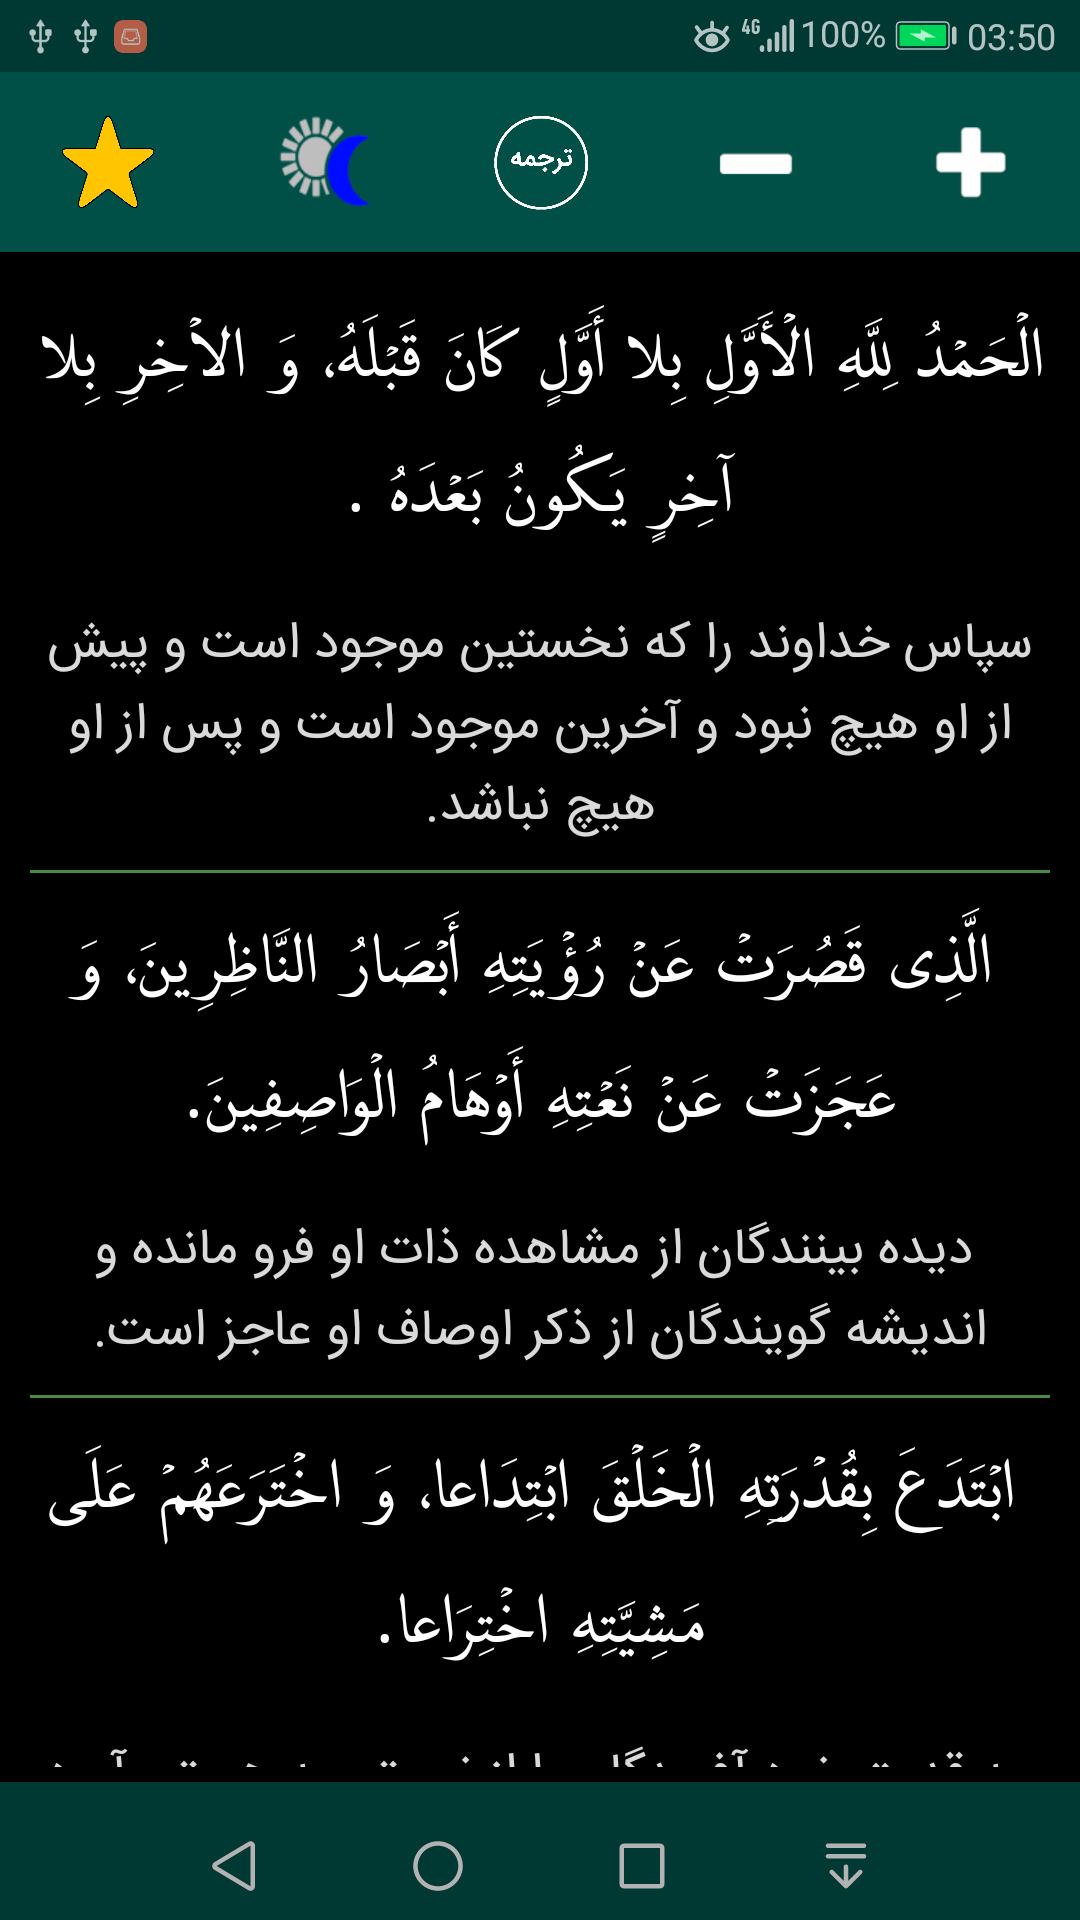 4G 100% 03:50
ترجمه
الْحَمْدُ لِلَّهِ الْأَوَّلِ بِلا أَوَّلٍ كَانَ قَبْلَهُ، وَ الاْخِرِ بِلا
آخِرٍ يَكُونُ بَعْدَهُ .
سپاس خداوند را که نخستین موجود است و پیش
از او هیچ نبود و آخرین موجود است و پس از او
هیچ نباشد.
الَّذِى قَصُرَتْ عَنْ رُؤْيَتِهِ أَبْصَارُ النَّاظِرِينَ، وَ
عَجَزَتْ عَنْ نَعْتِهِ أَوْهَامُ الْوَاصِفِينَ.
دیده بینندگان از مشاهده ذات او فرو مانده و
اندیشه گویندگان از ذکر اوصاف او عاجز است.
ابْتَدَعَ بِقُدْرَتِهِ الْخَلْقَ ابْتِدَاعا، وَ اخْتَرَعَهُمْ عَلَى
مَشِيَّتِهِ اخْتِرَاعا.